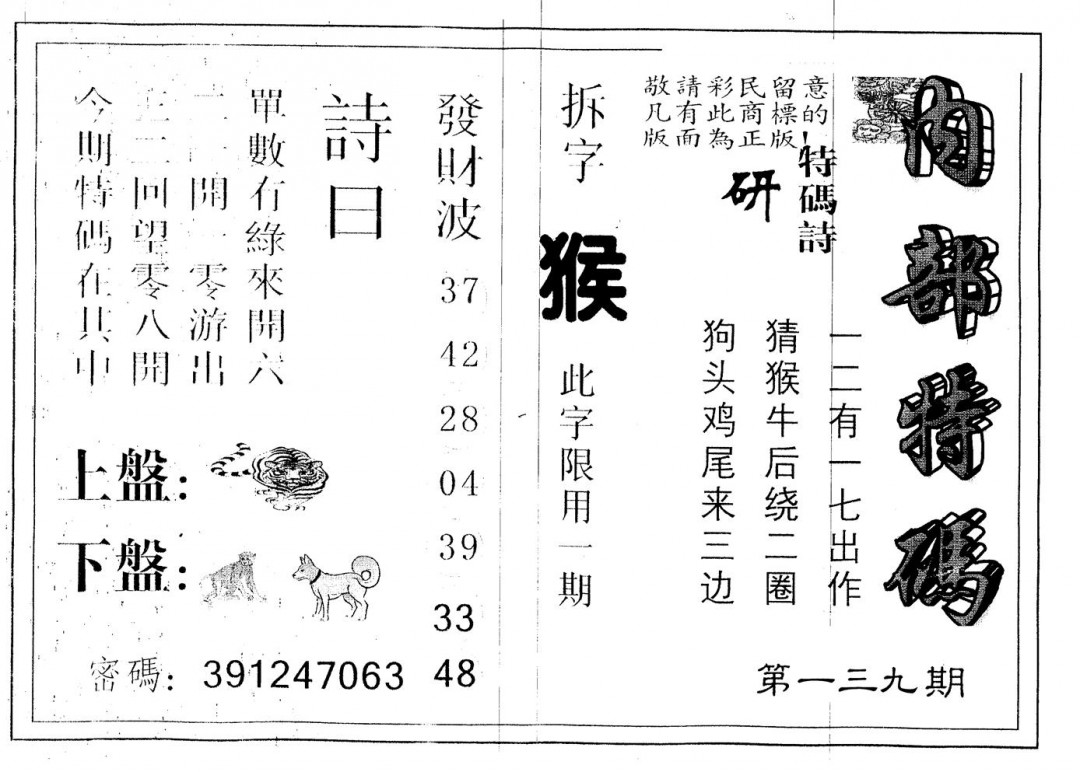 内部特碼
第一三九期
敬請彩民留意
凡有此商標的
版面為正版!
特碼詩
研
一二有一七出作
猜猴牛后绕二圈
狗头鸡尾来三边
拆字
猴
此字限用一期
發財波
37
42
28
04
39
33
48
詩曰
單數冇綠來開六
開一零游出
二回望零八開
今期特碼在其中
上盤:
下盤:
密碼: 391247063